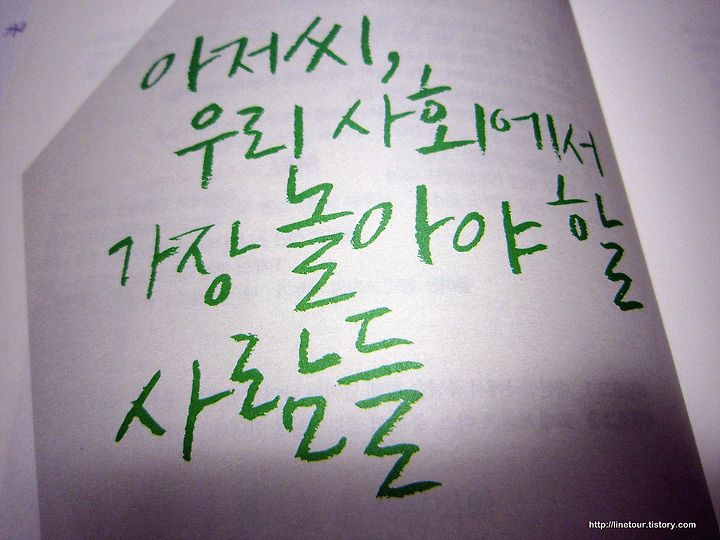 아저씨,
우리 사회에서
가장 놀아야 할
사람들
http://linetour.tistory.com